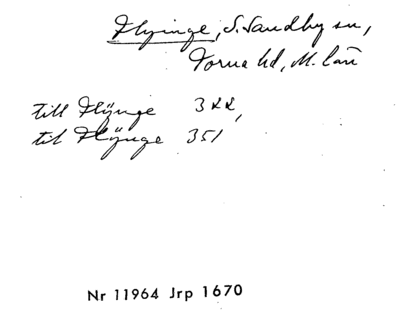 Flyinge, S. Sandby sn,
Torna hd, M. län
till Flÿnge 322,
til Flÿnge 351
Nr 11964 Jrp 1670